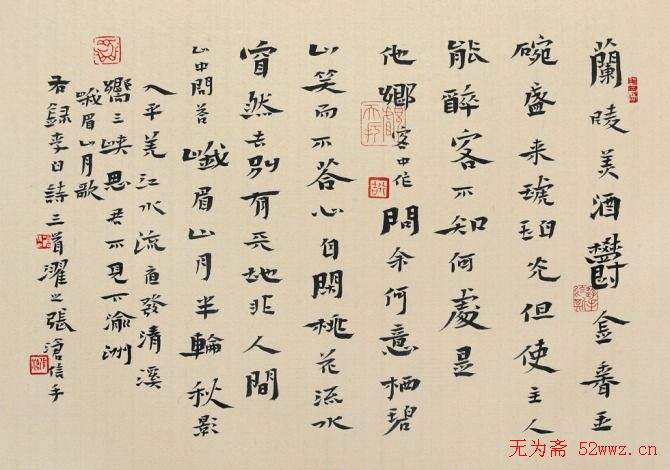 蘭陵美酒鬱金香玉
碗盛来琥珀光但使主人
能醉客不知何處是
他鄉 客中作 問余何意栖碧
山笑而不答心自閑桃花流水
窅然去别有天地非人間
山中問答 峨眉山月半輪秋影
入平羌江水流夜發清溪
嚮三峡思君不見下渝洲
峨眉山月歌
右録李白詩三首濯之張滄信手
无为斋 52wwz.cn